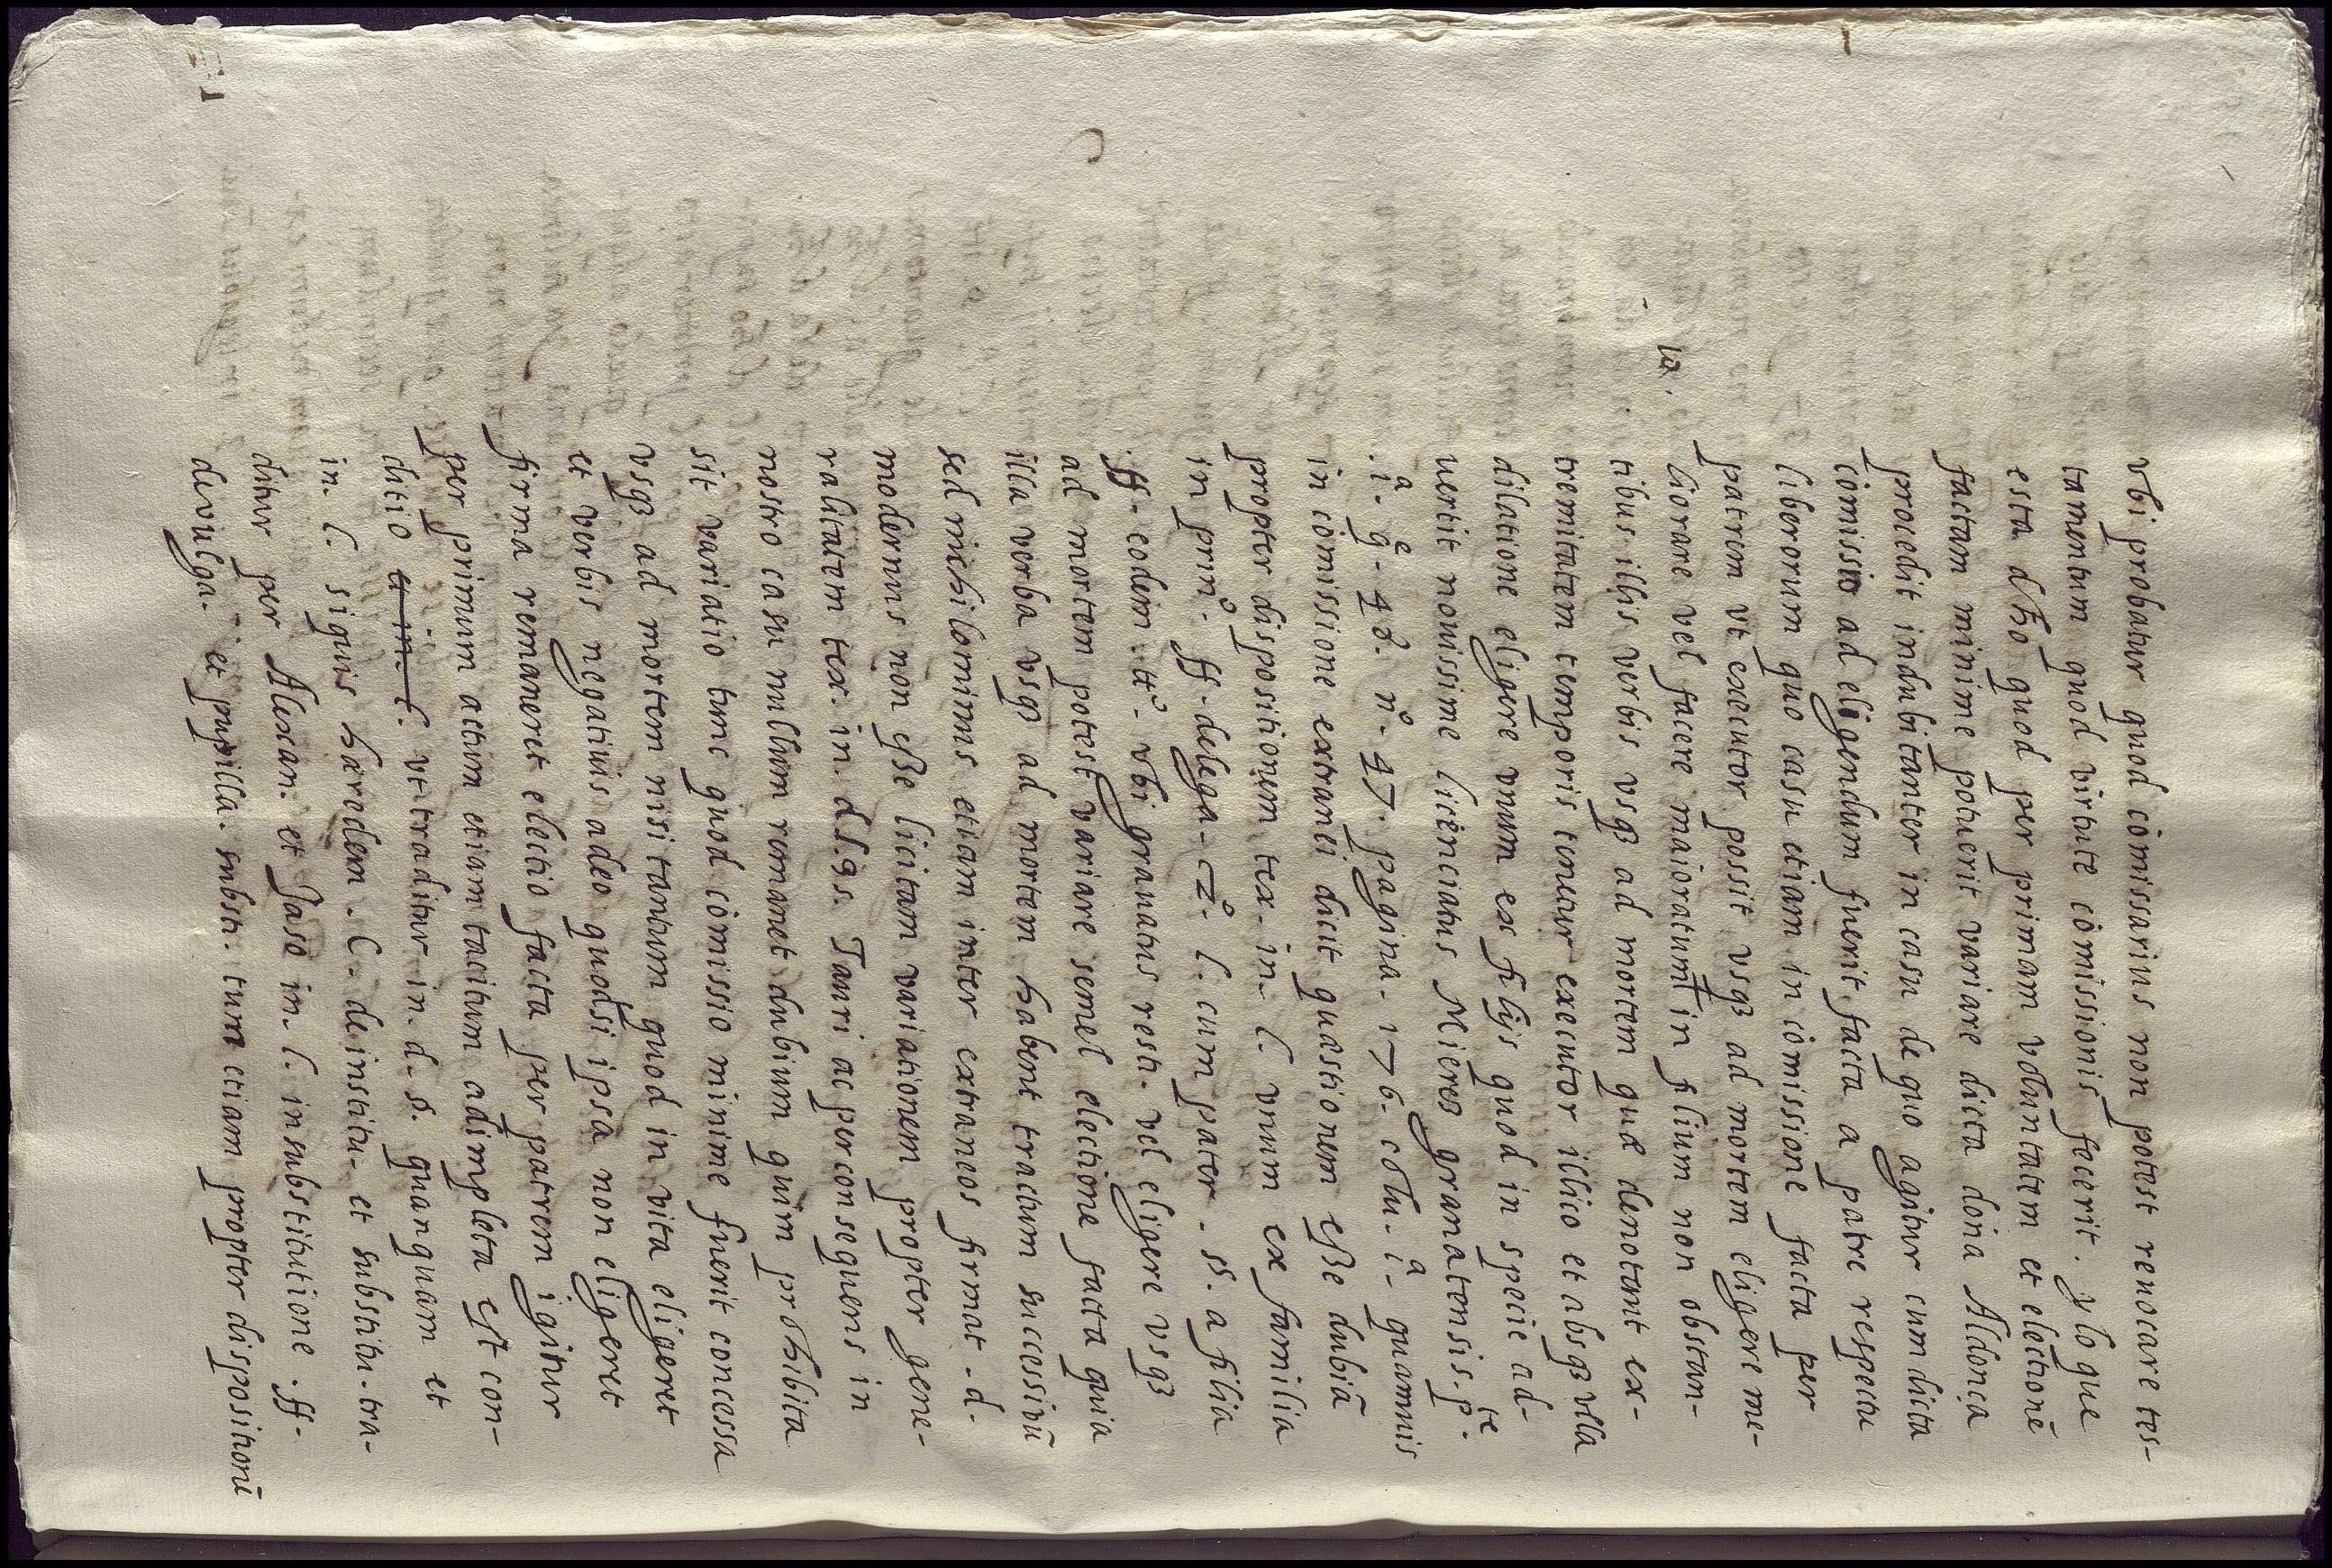 vbi probatur quod cōmissarius non potest reuocare tes-
tamentum quod virtute cōmissionis fecerit. y lo que
esta dho quod per primam voluntatem et electionē
factam minime potuerit variare dicta doña Aldonça
procedit indubitanter in casu de quo agitur cum dicta
cōmissio ad eligendum fuerit facta a patre respectu
liberorum quo casu etiam in cōmissione facta per
patrem vt executor possit vsq3 ad mortem eligere me-
liorare vel facere maioratum in filium non obstan-
tibus illis verbis vsq3 ad mortem quæ denotant ex-
tremitatem temporis tenetur executor illico et absq3 vlla
dilatione eligere vnum ex filijs quod in specie ad-
uertit nouissime licenciatus Mieres granatensis. pte.
.iª. qe. 48. nº. 47. pagina. 176. colu. iª. quamuis
in cōmissione extranei dicit quæstionem esse dubiā
propter dispositionem tex. in. l. vnum ex familia
in prinº. ff. de lega. 2º. l. cum pater. §. a filia
ff. eodem ttº. vbi grauatus restt. vel eligere vsq3
ad mortem potest variare semel electione facta quia
illa verba vsq3 ad mortem habent tractum successiuū
sed nichilominus etiam inter extraneos firmat. d.
modernus non esse licitam variationem propter gene-
ralitatem tex. in. d. l. 35. Tauri ac per consequens in
nostro casu nullum remanet dubium quin prohibita
sit variatio tunc quod cōmissio minime fuerit concessa
vsq3 ad mortem nisi tantum quod in vita eligeret
et verbis negatiuis adeo quodsi ipsa non eligeret
firma remaneret electio facta per patrem igitur
per primum actum etiam tacitum adimpleta est con-
ditio vt traditur in. d. §. quanquam et
in. l. siquis hæredem. C. de institu. et substitu. tra-
ditur per Alexan. et Jaso in. l. in substitutione. ff.
de vulga. et pupilla. substi. tum etiam propter dispositionē